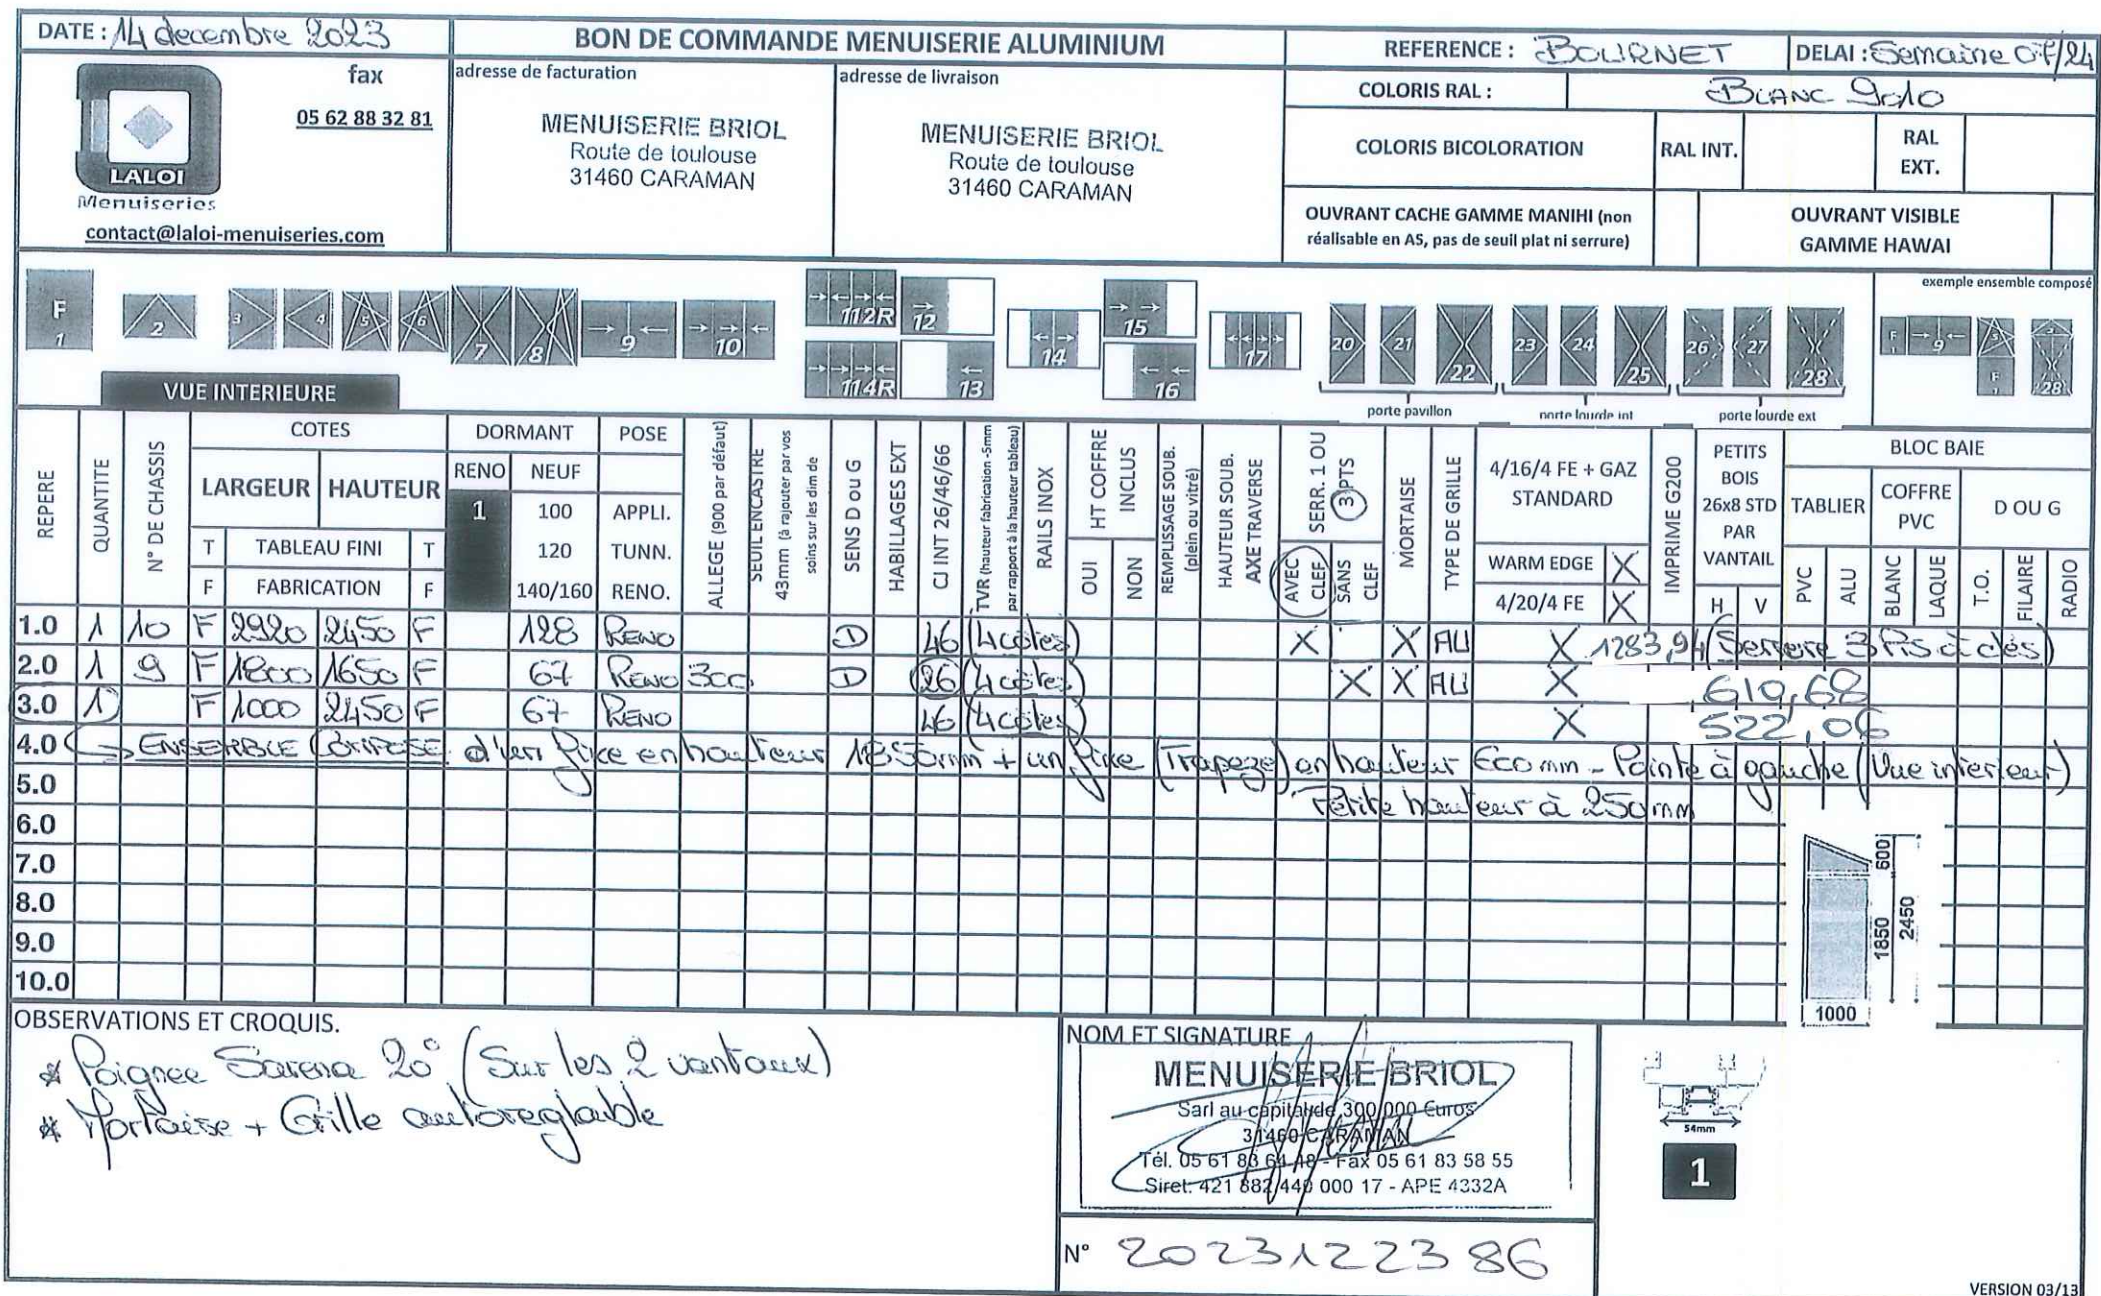 DATE : 14 decembre 2023
BON DE COMMANDE MENUISERIE ALUMINIUM
REFERENCE : BOURNET
DELAI : Semaine 07/24
fax
05 62 88 32 81
LALOI
Menuiseries
contact@laloi-menuiseries.com
adresse de facturation
MENUISERIE BRIOL
Route de toulouse
31460 CARAMAN
adresse de livraison
MENUISERIE BRIOL
Route de toulouse
31460 CARAMAN
COLORIS RAL : BLANC 9010
COLORIS BICOLORATION RAL INT. RAL EXT.
OUVRANT CACHE GAMME MANIHI (non
réalisable en AS, pas de seuil plat ni serrure)
OUVRANT VISIBLE
GAMME HAWAI
F 1 2 3 4 5 6 7 8 9 10 112R 114R 12 13 14 15 16 17 20 21 22 23 24 25 26 27 28
exemple ensemble composé
F 1 9 5 F 1 28
porte pavillon porte lourde int porte lourde ext
VUE INTERIEURE
REPERE
QUANTITE
N° DE CHASSIS
COTES
LARGEUR HAUTEUR
T TABLEAU FINI T
F FABRICATION F
DORMANT
RENO NEUF
1
100
120
140/160
POSE
APPLI.
TUNN.
RENO.
ALLEGE (900 par défaut)
SEUIL ENCASTRE
43mm (à rajouter par vos
soins sur les dim de
SENS D ou G
HABILLAGES EXT
CJ INT 26/46/66
TVR (hauteur fabrication -5mm
par rapport à la hauteur tableau)
RAILS INOX
HT COFFRE
INCLUS
OUI NON
REMPLISSAGE SOUB.
(plein ou vitré)
HAUTEUR SOUB.
AXE TRAVERSE
SERR. 1 OU
3 PTS
AVEC CLEF
SANS CLEF
MORTAISE
TYPE DE GRILLE
4/16/4 FE + GAZ
STANDARD
WARM EDGE X
4/20/4 FE X
IMPRIME G200
PETITS
BOIS
26x8 STD
PAR
VANTAIL
H V
BLOC BAIE
TABLIER
PVC ALU
COFFRE
PVC
BLANC LAQUE
D OU G
T.O. FILAIRE RADIO
1.0 1 10 F 2920 2450 F 128 RENO D 46 (4 côtés) X X AU X 1283,94 (Serrure 3 Pts à clés)
2.0 1 9 F 1800 1650 F 67 RENO 300 D 26 (4 côtés) X X AU X 619,68
3.0 1 F 1000 2450 F 67 RENO 46 (4 côtés) X 522,06
4.0 ENSEMBLE COMPOSE d'un fixe en hauteur 1850mm + un fixe (Trapeze) en hauteur 600 mm - Pointe à gauche (Vue interieur)
5.0 Petite hauteur à 250mm
6.0
7.0
8.0
9.0
10.0
600
1850
2450
1000
OBSERVATIONS ET CROQUIS.
* Poignee Sarena 20° (Sur les 2 vantaux)
* Mortaise + Grille autoreglable
NOM ET SIGNATURE
MENUISERIE BRIOL
Sarl au capital de 300 000 Euros
31460 CARAMAN
Tél. 05 61 83 64 18 - Fax 05 61 83 58 55
Siret: 421 882 440 000 17 - APE 4332A
N° 2023122386
54mm
1
VERSION 03/13